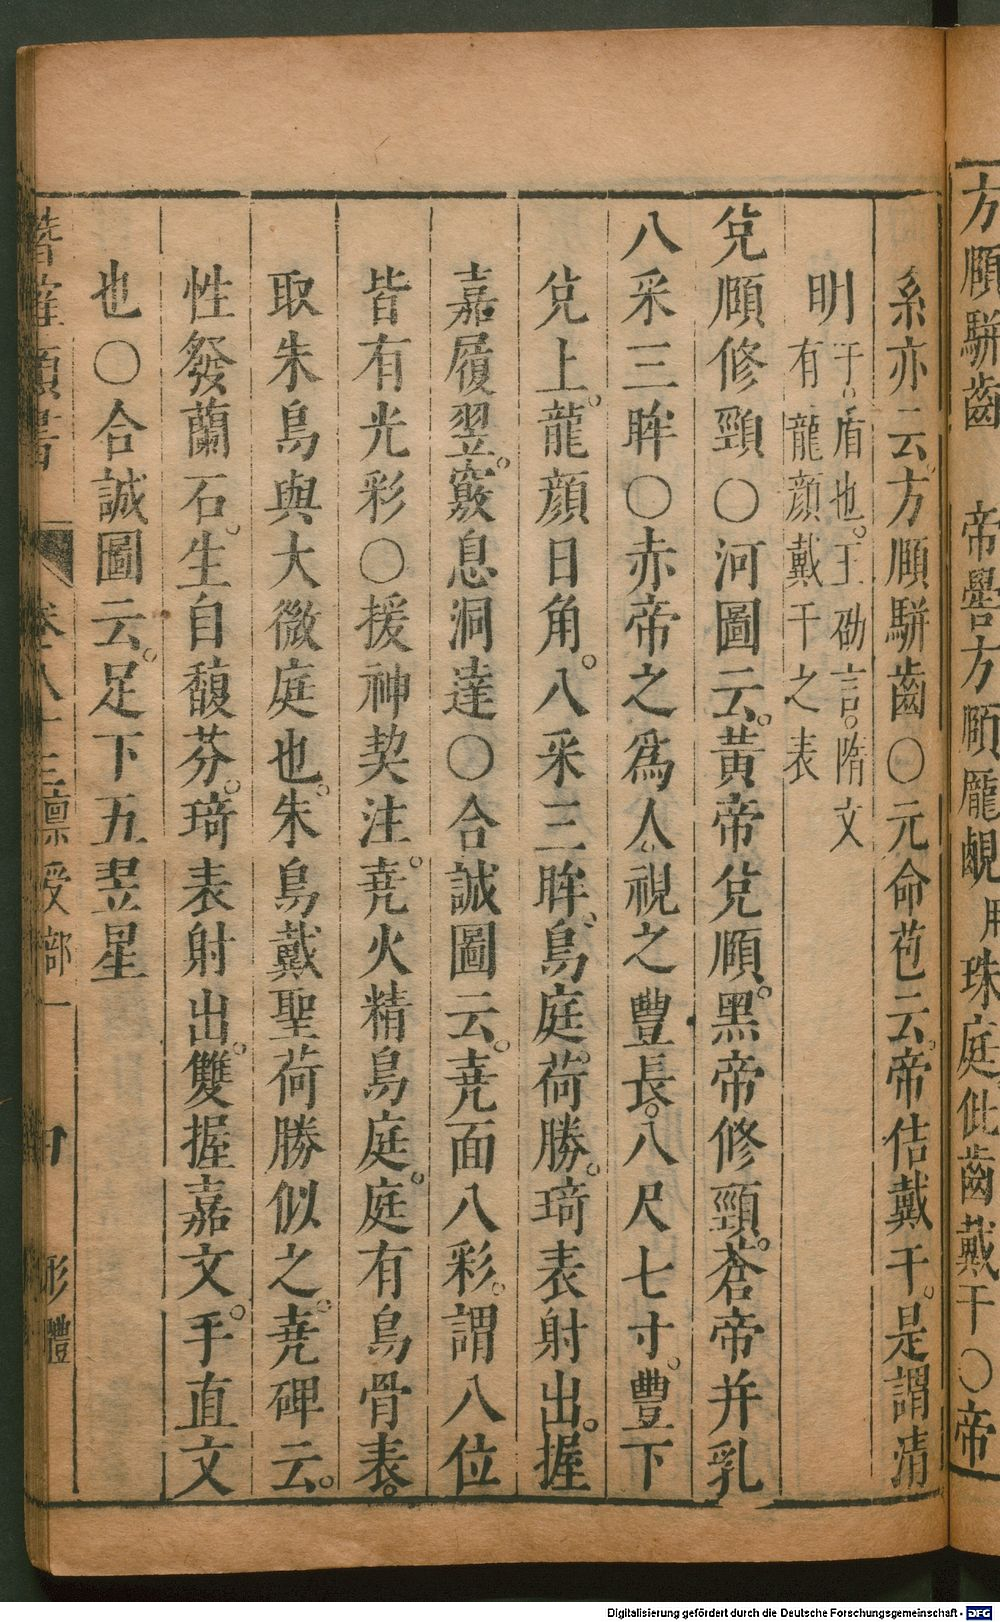 方頤駢齒　帝嚳方頤龐覶　珠庭仳齒戴干○帝
系亦云。方頤駢齒○元命苞云。帝佶戴干。是謂清
明
于。盾也。王劭言。隋文
有龍顏戴干之表
兌頤修頸○河圖云。黃帝兌頤。黑帝修頸。蒼帝并乳
八采三眸○赤帝之爲人。視之豐長。八尺七寸。豐下
兌上。龍顏日角。八采三眸。鳥庭。荷勝。琦表射出。握
嘉履翌。竅息洞達○合誠圖云。堯面八彩。謂八位
皆有光彩○援神契注。堯。火精鳥庭。庭有鳥骨表。
取朱鳥與大微庭也。朱鳥戴聖荷勝似之。堯碑云。
性發蘭石。生自馥芬。琦表射出。雙握嘉文。手直文
也○合誠圖云。足下五翌星
潛確類書
卷八十三稟受部一
形體
Digitalisierung gefördert durch die Deutsche Forschungsgemeinschaft - DFG